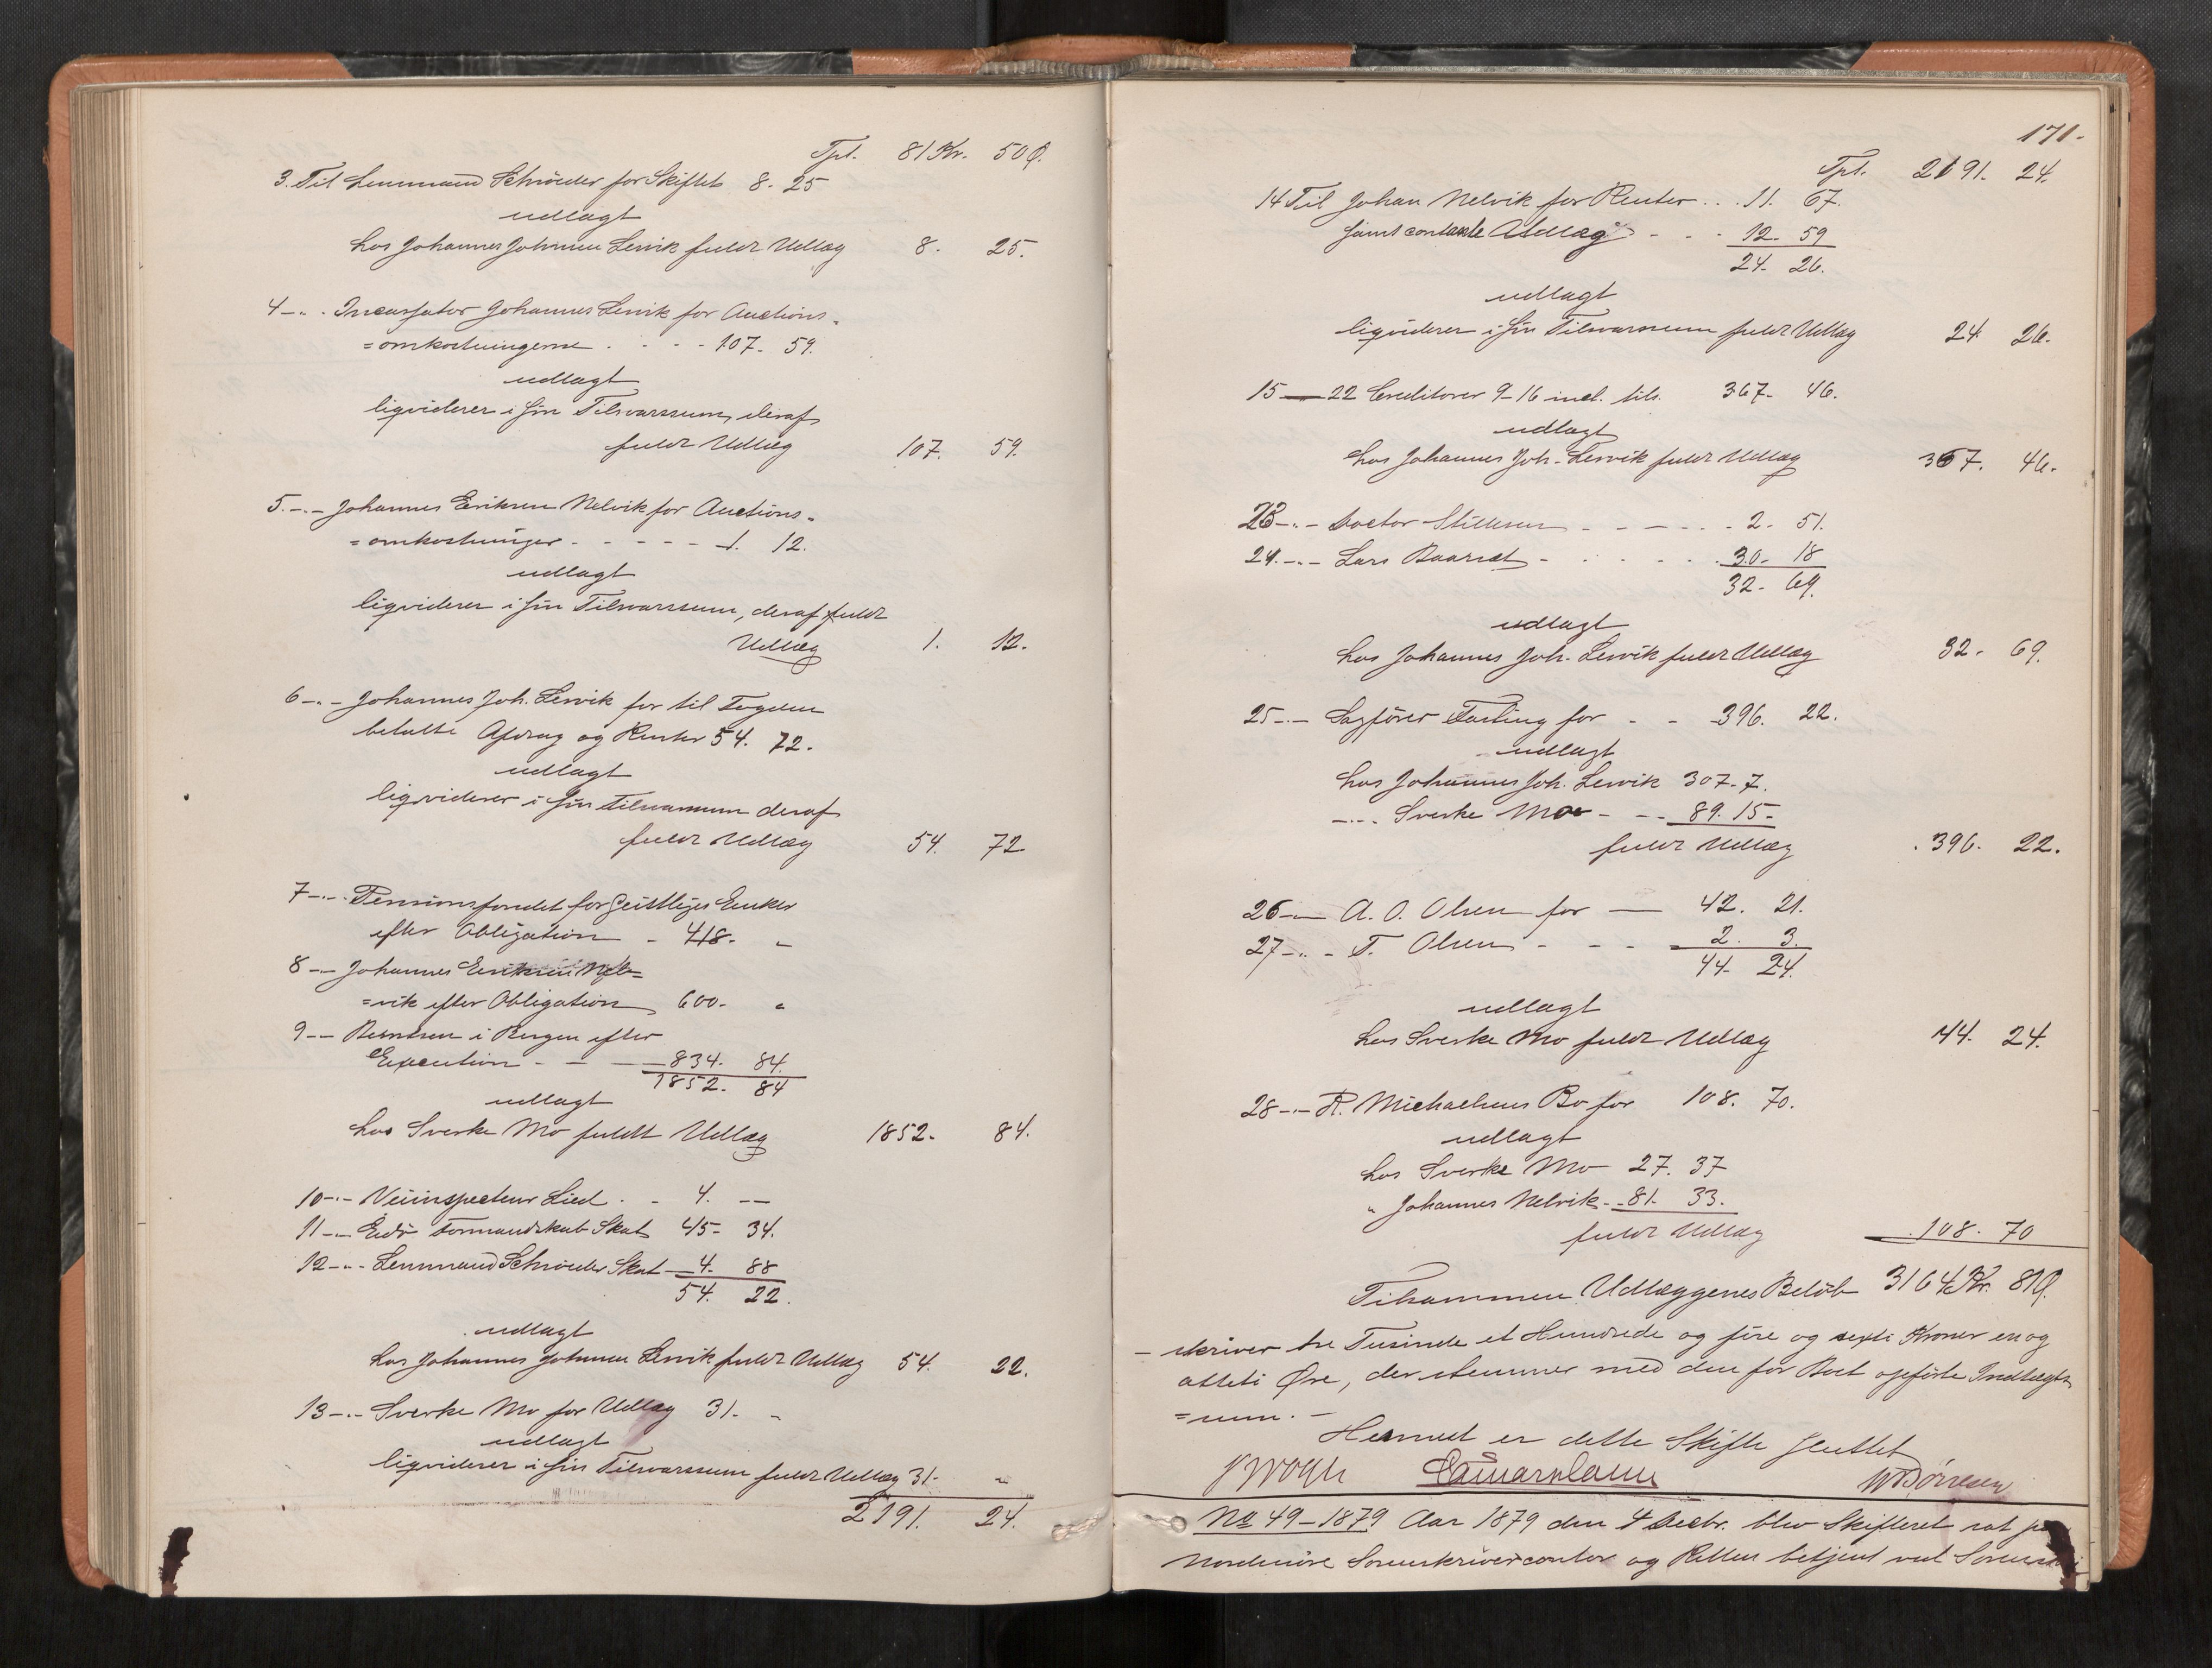 Tpt. 81 Kr. 50 Ø.
3. Til Lensmand Schrøder for Skiftet 8. 25
udlagt
hos Johannes Johnsen Lervik fuldt Udlæg 8. 25.
4 -"- Incassator Johannes Lervik for Auctions-
=omkostningerne . . . . 107. 59.
udlagt
liqviderer i sin Tilsvarssum, deraf
fuldt Udlæg 107. 59.
5. -"- Johannes Eriksen Nelvik for Auctions-
=omkostninger - - - - - 1. 12.
udlagt
liqviderer i sin Tilsvarssum, deraf fuldt
Udlæg 1. 12.
6 -"- Johannes Joh. Lervik for til Fogden
betalte Afdrag og Renter 54. 72.
udlagt
liqviderer i sin Tilsvarssum deraf
fuldt Udlæg 54. 72
7 -"- Pensionsfondet for Geistliges Enker
efter Obligation - 418. "
8 -"- Johannes Eriksen Nel=
=vik efter Obligation 600. "
9 -- Berntsen i Bergen efter
Execution - - 834. 84.
1852. 84
udlagt
hos Sverke Mo fuldt Udlæg 1852. 84.
10 -"- Veiinspecteur Lied . - 4. --
11 -"- Edø Formandskab Skat 45- 34.
12 -"- Lensmand Schrøder Skat 4. 88
54. 22.
udlagt
hos Johannes Johnsen Lervik fuldt Udlæg 54. 22.
13 -"- Sverke Mo for Udlæg 31. "
udlagt
liqviderer i sin Tilsvarssum fuldt Udlæg 31. "
2191. 24.
171.
Tpt. 2191. 24.
14 Til Johan Nelvik for Renter . . . 11. 67.
samt contante Udlæg - - - 12. 59
24. 26.
udlagt
liqviderer i sin Tilsvarssum fuldt Udlæg 24. 26.
15 — 22 Creditorer 9-16 incl. tils. 367. 46.
udlagt
hos Johannes Joh. Lervik fuldt Udlæg 367. 46.
23 -"- Doctor - - - - - 2. 51.
24. -"- Lars - . . . . . 30. 18
32. 69.
udlagt
hos Johannes Joh. Lervik fuldt Udlæg 32. 69.
25 -"- Sagfører Fasting for - - 396. 22.
udlagt
hos Johannes Joh. Lervik 307. 7.
-"- Sverke Mo - -- 89. 15-
fuldt Udlæg . 396. 22.
26 -"- A. O. Olsen for — 42. 21.
27 -"- T. Olsen - - - 2. 3.
44. 24.
udlagt
hos Sverke Mo fuldt Udlæg 44. 24.
28 -"- R. Michaelsens Bo for 108. 70.
udlagt
hos Sverke Mo 27. 37
" Johannes Nelvik - 81. 33.
fuldt Udlæg 108. 70
Tilsammen Udlæggenes Beløb 3164 Kr. 81 Ø.
- skriver tre Tusinde et Hundrede og fire og sexti Kroner en og
otteti Øre, der stemmer med den for Boet opførte Indtægts
=sum. -
Hermed er dette Skifte sluttet
J Vogt
No 49-1879 Aar 1879 den 4 Decbr. blev Skifteret sat paa
Nordmøre Sorenskrivercontor og Retten betjent ved Sorensk